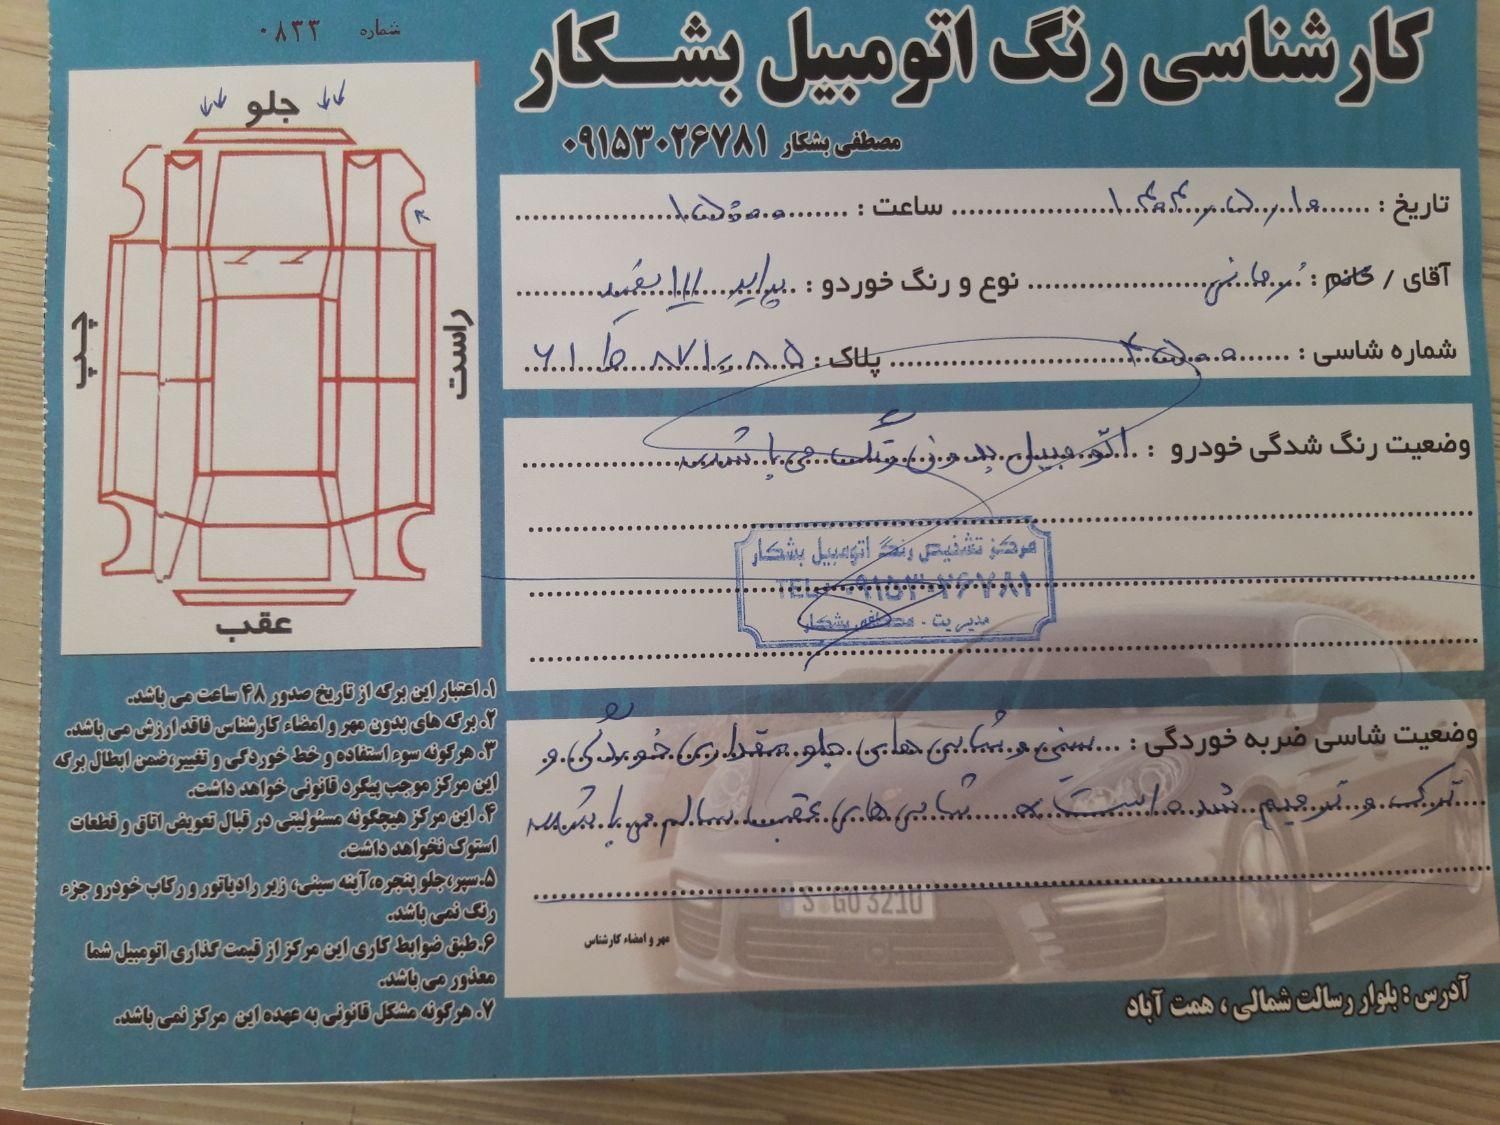 کارشناسی رنگ اتومبیل بشکار
شماره ۰۸۳۳
مصطفی بشکار ۰۹۱۵۳۰۲۶۷۸۱
تاریخ : ۱۴۰۴/۵/۱۰ ساعت : ۱۵:۰۰
آقای / خانم : نوع و رنگ خوردو : پراید ۱۱۱ سفید
شماره شاسی : پلاک :
وضعیت رنگ شدگی خودرو : اتومبیل بدون رنگ می باشد
مرکز تشخیص رنگ اتومبیل بشکار
TEL: ۰۹۱۵۳۰۲۶۷۸۱
مدیریت - مصطفی بشکار
وضعیت شاسی ضربه خوردگی : سینی و شاسی های جلو مقداری خوردگی و
ترک و ترمیم شده است شاسی های عقب سالم می باشد
S GO 3210
مهر و امضاء کارشناس
آدرس : بلوار رسالت شمالی ، همت آباد
جلو
چپ
راست
عقب
۱. اعتبار این برگه از تاریخ صدور ۴۸ ساعت می باشد.
۲. برگه های بدون مهر و امضاء کارشناس فاقد ارزش می باشد.
۳. هرگونه سوء استفاده و خط خوردگی و تغییر،ضمن ابطال برگه
این مرکز موجب پیگرد قانونی خواهد داشت.
۴. این مرکز هیچگونه مسئولیتی در قبال تعویض اتاق و قطعات
استوک نخواهد داشت.
۵.سپر،جلو پنجره،آینه سینی، زیر رادیاتور و رکاب خودرو جزء
رنگ نمی باشد.
۶.طبق ضوابط کاری این مرکز از قیمت گذاری اتومبیل شما
معذور می باشد.
۷. هرگونه مشکل قانونی به عهده این مرکز نمی باشد.